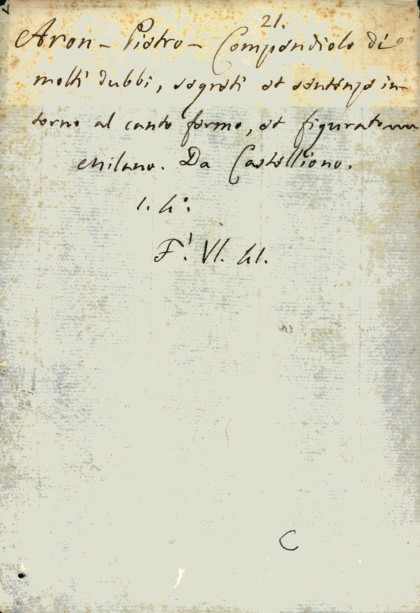 21.
Aron - Pietro - Compendiolo di
molti dubbi, segreti et sentenze in-
torno al canto fermo, et figurato
Milano. Da Castelliono.
C